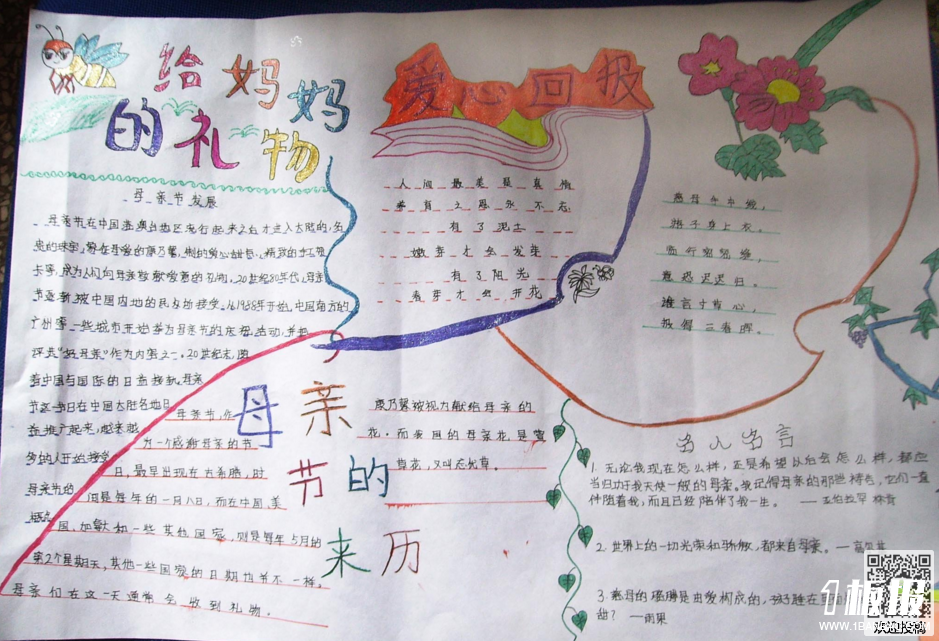 给妈妈
的礼物
母亲节发展
母亲节在中国港澳台地区流行起来之后才进入大陆的,
卡等,成为人们向母亲致敬 20世纪80年代,母亲
节逐渐被中国内地的民众所接受。从1988年开始,中国南方的
广州等一些城市开始举办母亲节的庆祝活动,并把
评选"好母亲"作为内容之一。20世纪末,随
着中国与国际的日益接轨,母亲
节这一节日在中国大陆各地日
益推广起来,越来越
多的人开始接受
母亲节的
爱心回报
人间最美是真情
养育之恩永不忘
有了泥土
嫩芽才会发芽
有了阳光
春芽才会开花
慈母手中线,
游子身上衣。
临行密密缝,
意恐迟迟归。
谁言寸草心,
报得三春晖。
母亲
节的
来历
母亲节,作
为一个感谢母亲的节
日,最早出现在古希腊,时
间是每年的一月八日,而在中国、美
国、加拿大和一些其他国家,则是每年5月的
第2个星期天,其他一些国家的日期也并不一样。
母亲们在这一天通常会收到礼物。
康乃馨被视为献给母亲的
花。而我国的母亲花是萱
草花,又叫忘忧草。
名人名言
1. 无论我现在怎么样,还是希望以后会怎么样,都应
当归功于我天使一般的母亲。我记得母亲的那些祷告,它们一直
伴随着我,而且已经陪伴了我一生。 — 亚伯拉罕·林肯
2. 世界上的一切光荣和骄傲,都来自母亲。—高尔基
3. 慈母的胳膊是由爱构成的,孩子睡在里
甜? —雨果
1板报
WWW.1BANBAO.COM
欢迎投稿